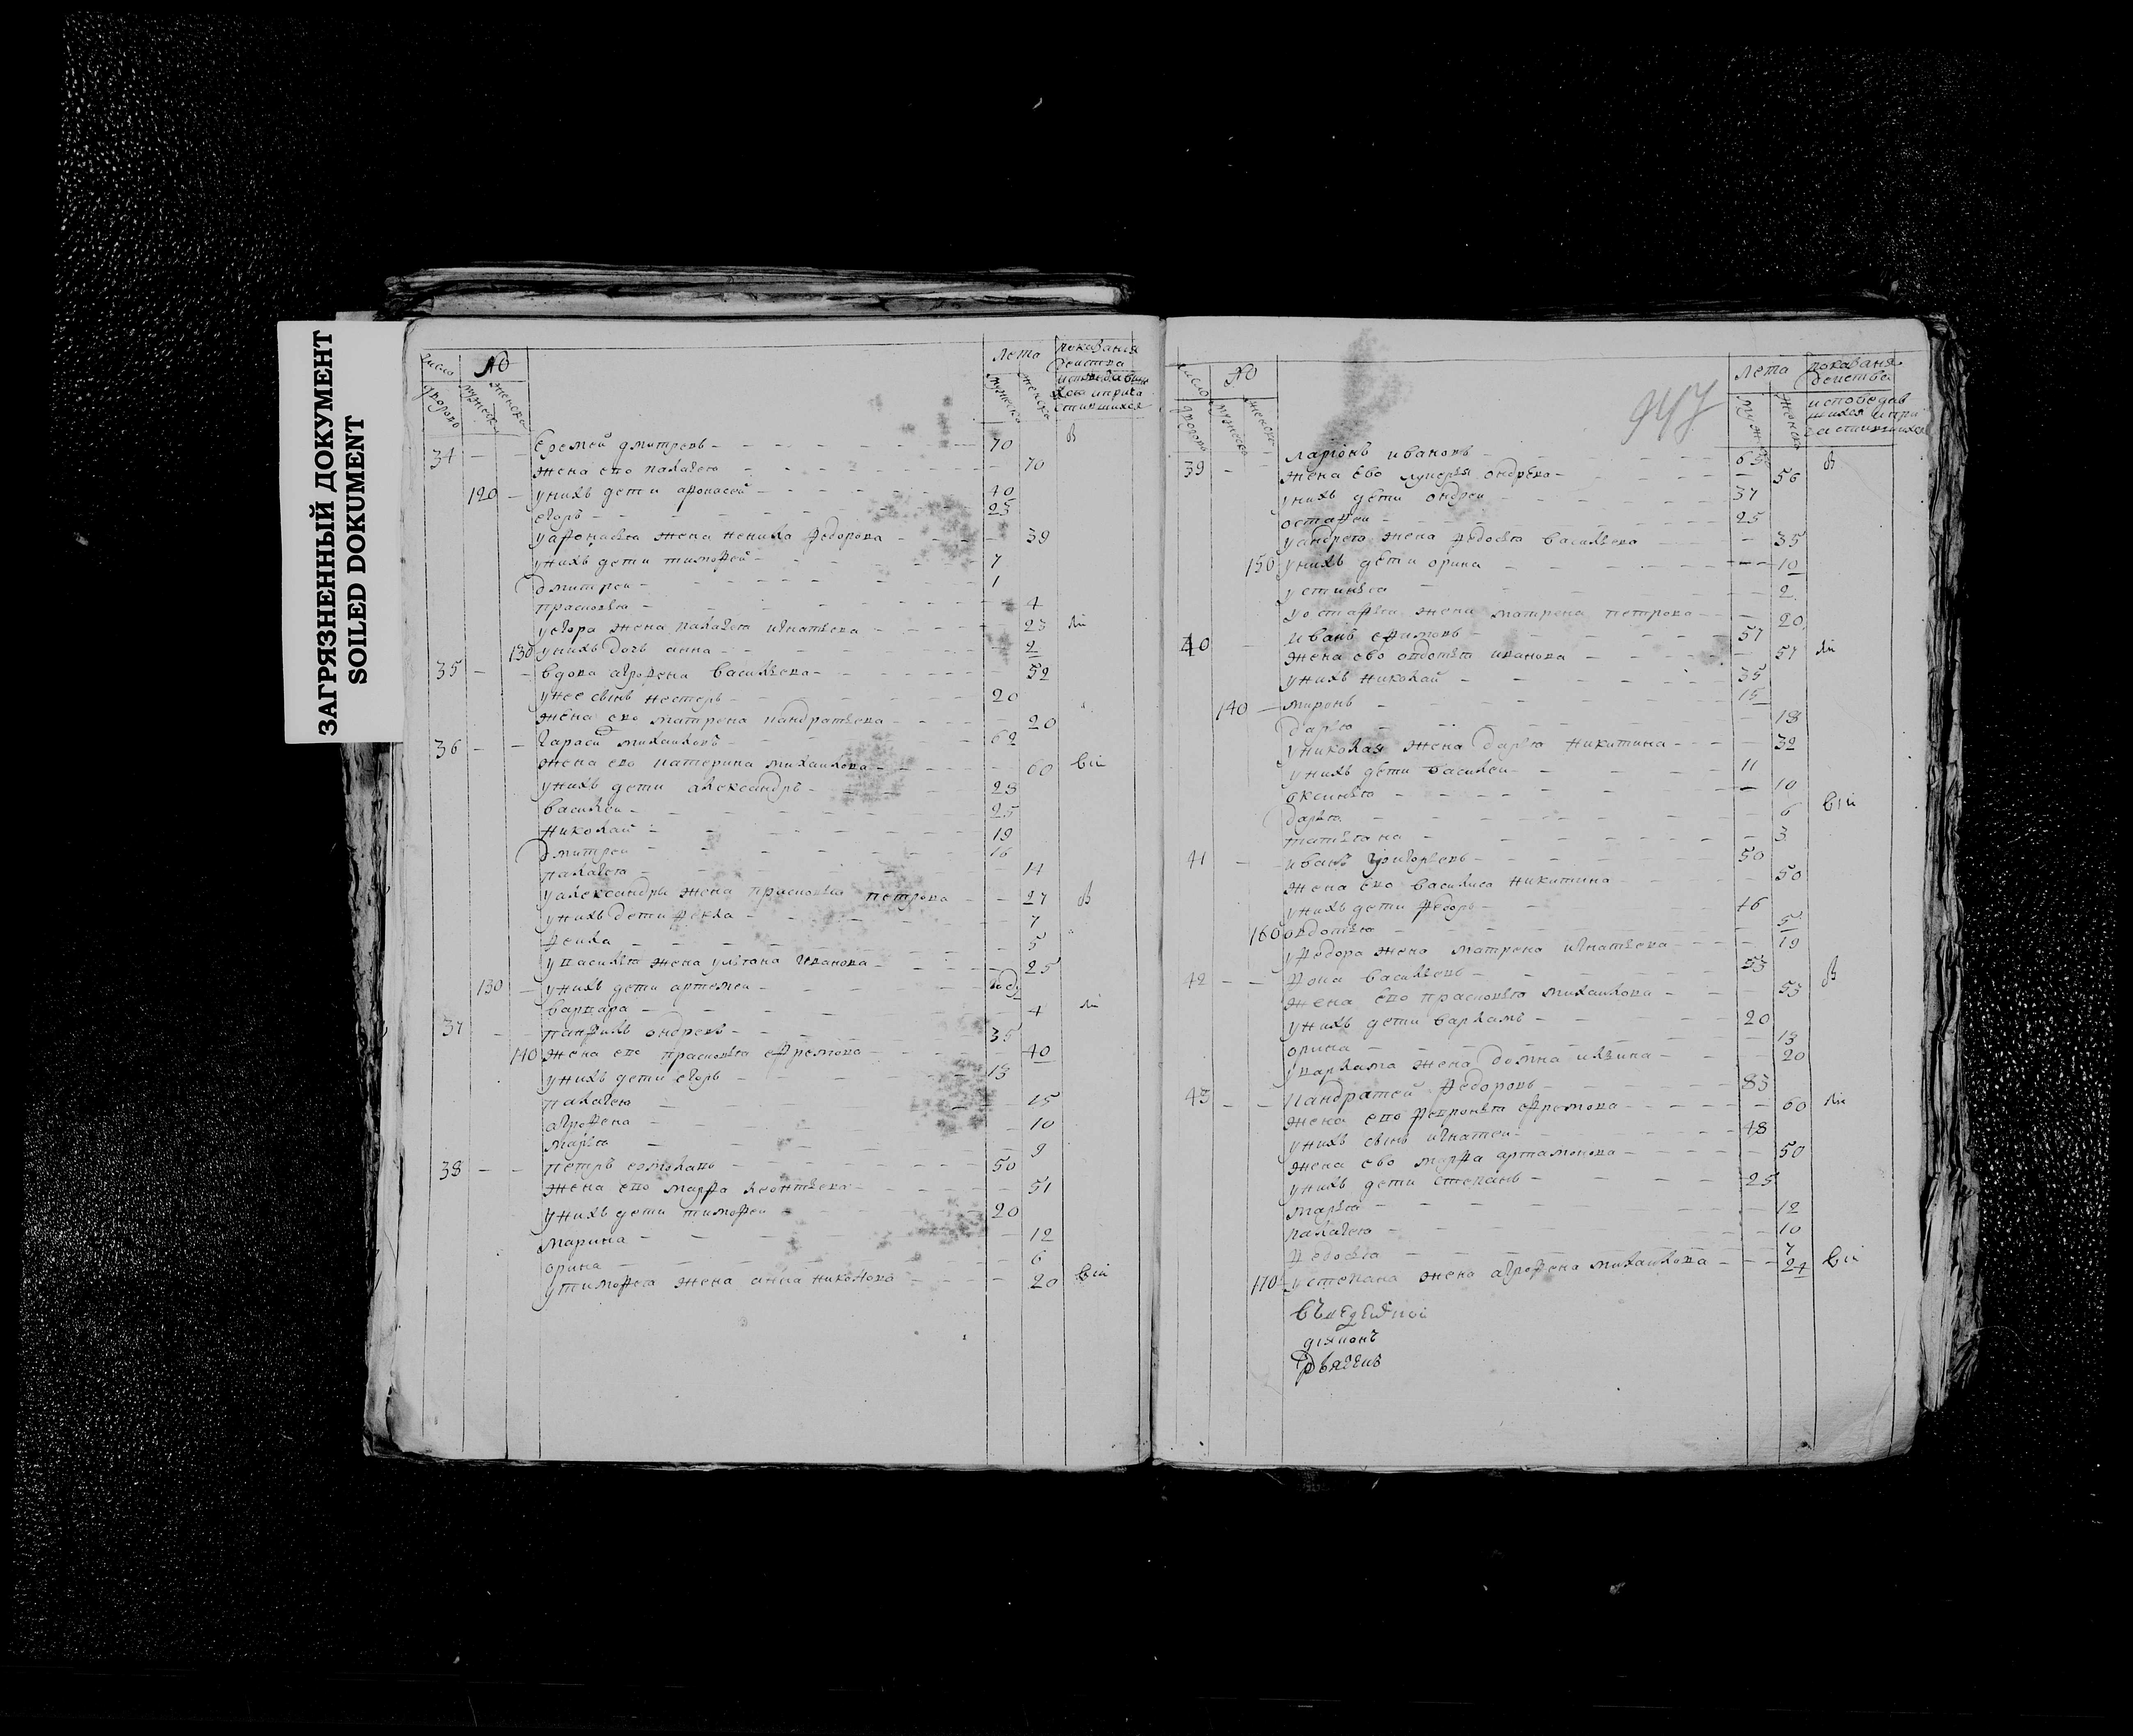 ЗАГРЯЗНЕННЫЙ ДОКУМЕНТ
SOILED DOKUMENT
число дворовъ № мужеска женска Лета мужеска женска показания
34 Еремей дмитревъ 70
жена ево палагея 70
120 у нихъ дети афонасей 40
егоръ 25
у афонасея жена ненила федорова 39
у нихъ дети тимофей 7
дмитреи 1
прасковья 4
у егора жена палагея игнатьева 23
130 у нихъ дочь анна 2
35 вдова агрофена васильева 52
у нее сынъ нестеръ 20
жена ево матрена кандратьева 20
36 Гараси михаиловъ 62
жена ево катерина михаилова 60
у нихъ дети александръ 28
василеи 25
николаи 19
дмитреи 16
палагея 14
у александры жена прасковья петрова 27
у нихъ дети фекла 7
фекла 5
у василья жена ульяна иванова 25
130 у нихъ дети артемеи году
варвара 4
37 панфилъ ондревъ 35
140 жена ево прасковья ефремова 40
у нихъ дети егоръ 13
палагея 15
агрофена 10
марья 9
38 петръ ермолавъ 50
жена ево марфа леонтьева 51
у нихъ дети тимофеи 20
марина 12
орина 6
у тимофея жена анна никонова 20
947
число дворовъ № мужеска женска Лета мужеска женска показания деиства исповедав шихся и при частившихся
39 ларионъ ивановъ 65
жена ево лукерья ондрева 56
у нихъ дети ондреи 37
остафеи 25
у андрея жена федосья васильева 35
150 у нихъ дети орина 10
устинья 2
у остафья жена матрена петрова 20
40 Иванъ ефимовъ 57
жена ево овдотья иванова 57
у нихъ николай 35
140 миронъ 15
дарья 18
у николая жена дарья никитина 32
у нихъ дети василеи 11
оксинья 10
дарья 6
татьяна 3
41 иванъ григорьевъ 50
жена ево василиса никитина 50
у нихъ дети федоръ 16
160 овдотья 5
у федора жена матрена игнатьева 19
42 фока васильевъ 53
жена ево прасковья михаилова 53
у нихъ дети варламъ 20
орина 13
у варлама жена домна ильина 20
43 кандратеи федоровъ 83
жена ево февронья ефремова 60
у нихъ сынъ игнатеи 48
жена ево марфа артамонова 50
у нихъ дети степанъ 25
марья 12
палагея 10
федосья 7
170 у степана жена агрофена михаилова 24
диякон